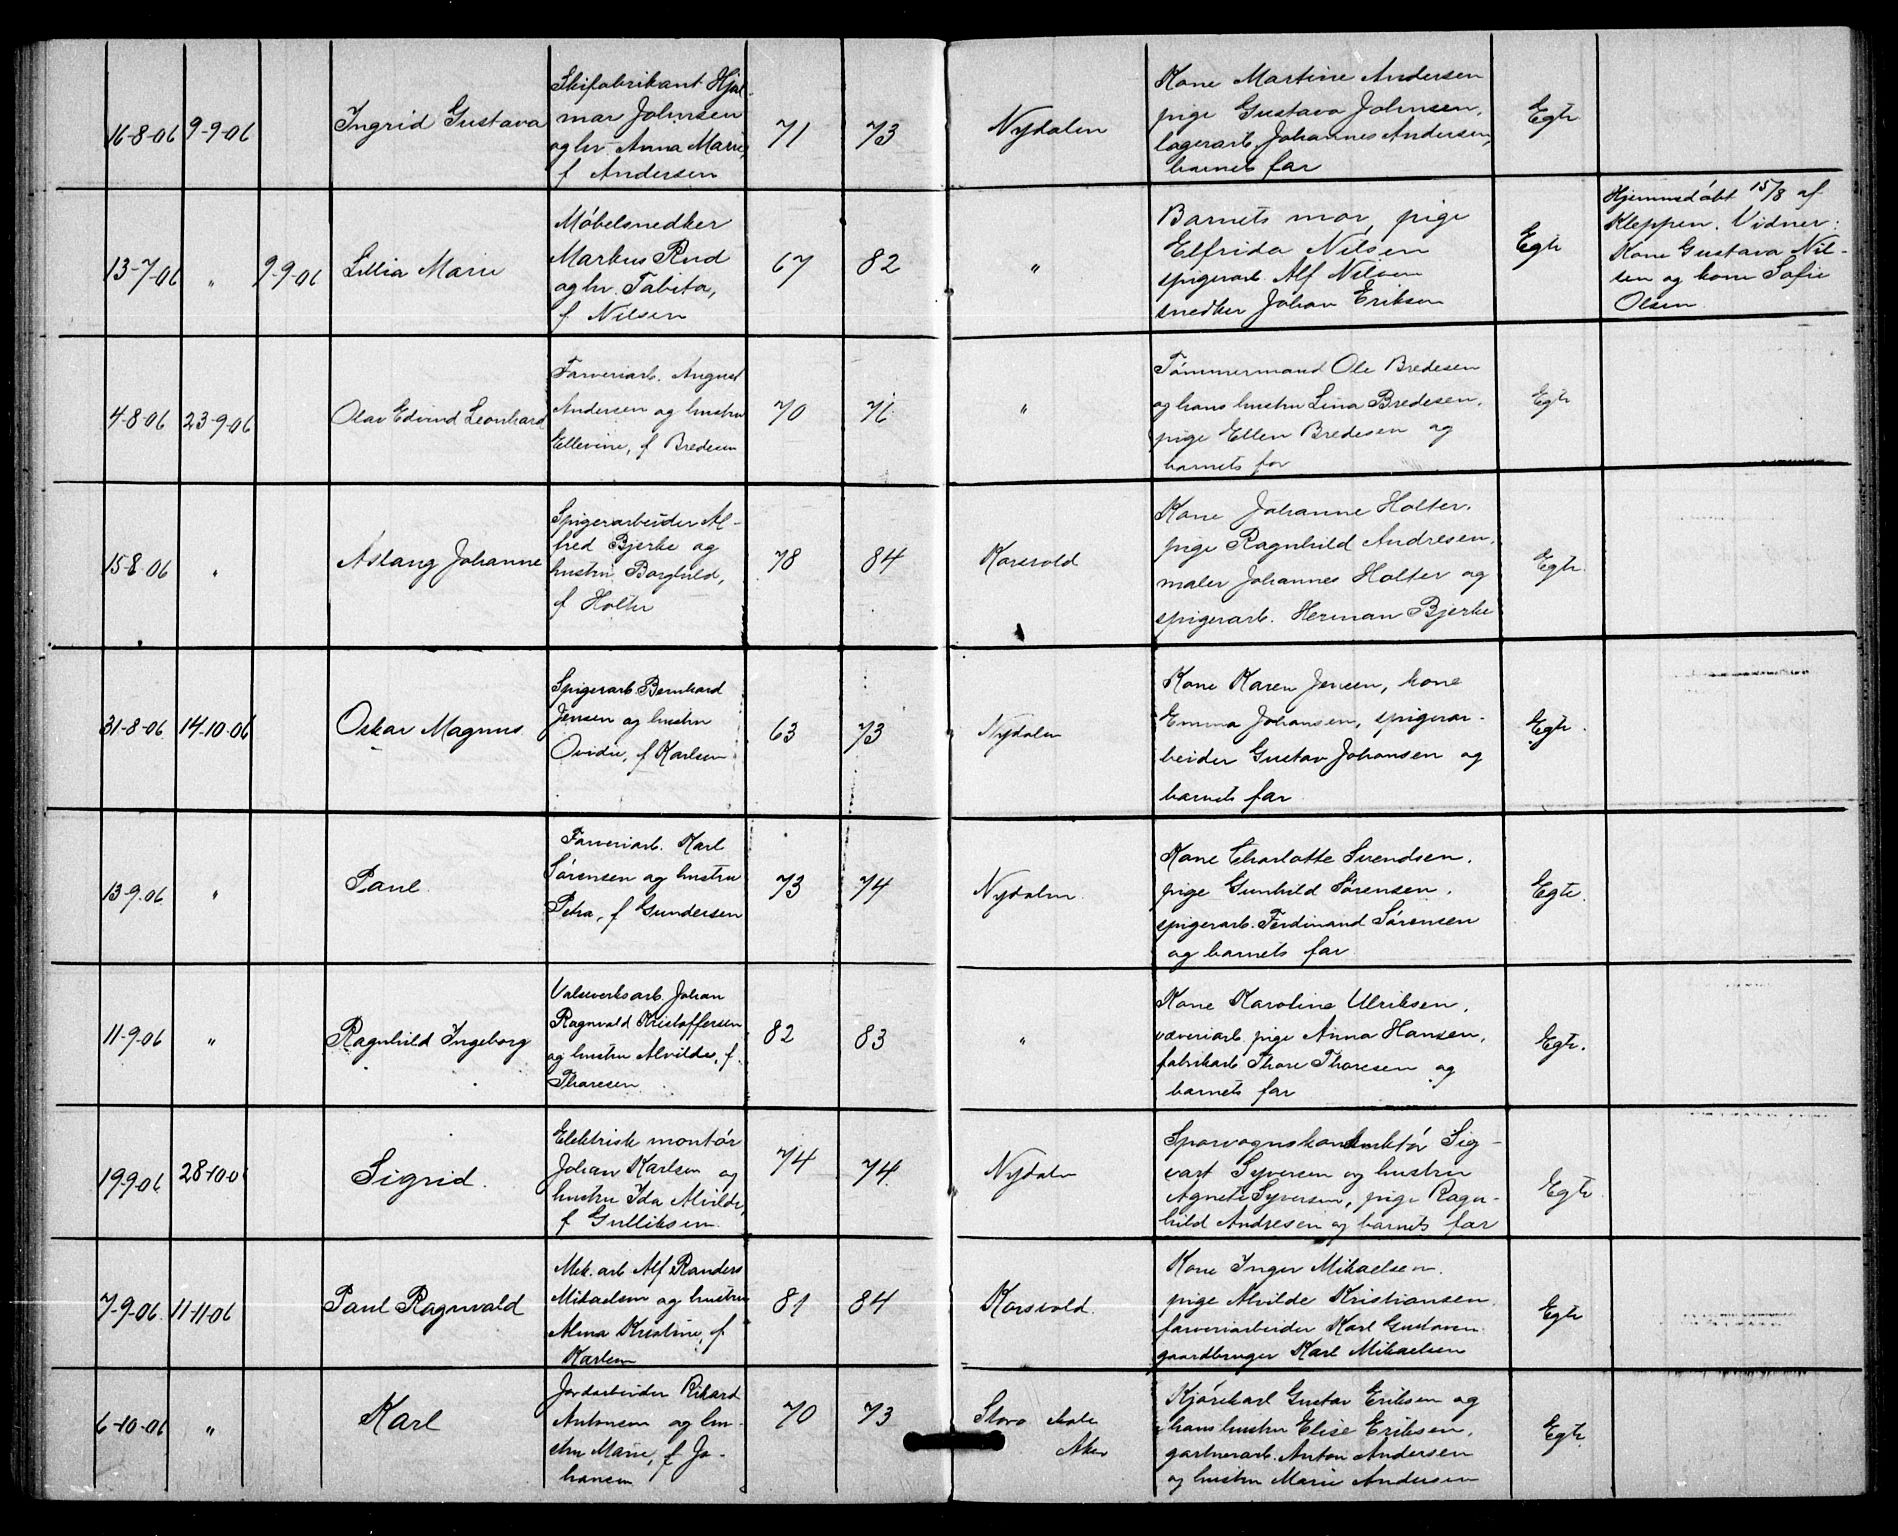 16-8-06 9-9-06 Ingrid Gustava
Skifabrikant Hjal-
mar Johnsen
og hr. Anna Marie,
f Andersen
71 73 Nydalen
Kone Martine Andersen
pige Gustava Johnsen,
lagerarb. Johannes Andersen,
barnets far
Egte
13-7-06 " 9-9-06 Lillia Marie
Møbelsnedker
Markus Rud
og hr. Tabita,
f Nilsen
67 82 "
Barnets mor, pige
Elfrida Nilsen
spigerarb. Alf Nilsen
snedker Johan Eriksen
Egte
Hjemmedøbt 15/8 af
Kleppen. Vidner:
Kone Gustava Nil-
sen og kone Sofie
Olsen
4-8-06 23-9-06 Olav Edvind Leonhard
Farveriarb. August
Andersen og hustru
Ellevine, f Bredesen
70 76 "
Tømmermand Ole Bredesen
og hans hustru Lina Bredesen,
pige Ellen Bredesen og
barnets far
Egte
15-8-06 " Aslaug Johanne
Spigerarbeider Al-
fred Bjerke og
hustru Borghild,
f Holter
78 84 Korsvold
Kone Johanne Holter,
pige Ragnhild Andresen,
maler Johannes Holter og
spigerarb. Herman Bjerke
Egte
31-8-06 14-10-06 Oskar Magnus
Spigerarb. Bernhard
Jensen og hustru
Ovidie, f Karlsen
63 73 Nydalen
Kone Karen Jensen, kone
Emma Johansen, spigerar-
beider Gustav Johansen og
barnets far
Egte
13-9-06 " Paul
Farveriarb. Karl
Sørensen og hustru
Petra, f Gundersen
73 74 Nydalen
Kone Charlotte Svendsen,
pige Gunhild Sørensen,
spigerarb. Ferdinand Sørensen
og barnets far
Egte
11-9-06 " Ragnhild Ingeborg
Valseverksarb. Johan
Ragnvald Kristoffersen
og hustru Alvilde, f.
Thoresen
82 83 "
Kone Karoline Ulriksen,
væveriarb. pige Anna Hansen,
fabrikarb. Thore Thoresen og
barnets far
Egte
19-9-06 28-10-06 Sigrid
Elektrisk montør
Johan Karlsen og
hustru Ida Alvilde,
f Gulliksen
74 74 Nydalen
Sporvognskonduktør Sig-
vart Syversen og hustru
Agnete Syversen, pige Ragn-
hild Andresen og barnets far
Egte
7-9-06 11-11-06 Paul Ragnvald
Mek. arb. Alf Randers
Mikaelsen og hustru
Alma Kristine, f
Karlsen
81 84 Korsvold
Kone Inger Mikaelsen,
pige Alvilde Kristiansen
farveriarbeider Karl Gustavsen
gaardbruger Karl Mikaelsen
Egte
6-10-06 " Karl
Jordarbeider Rikard
Antonsen og hu-
stru Marie, f Jo-
hansen
70 73 Storo
Aker
Kjørekarl Gustav Eriksen og
hans hustru Elise Eriksen,
gartnerarb. Anton Andersen
og hustru Marie Andersen
Egte